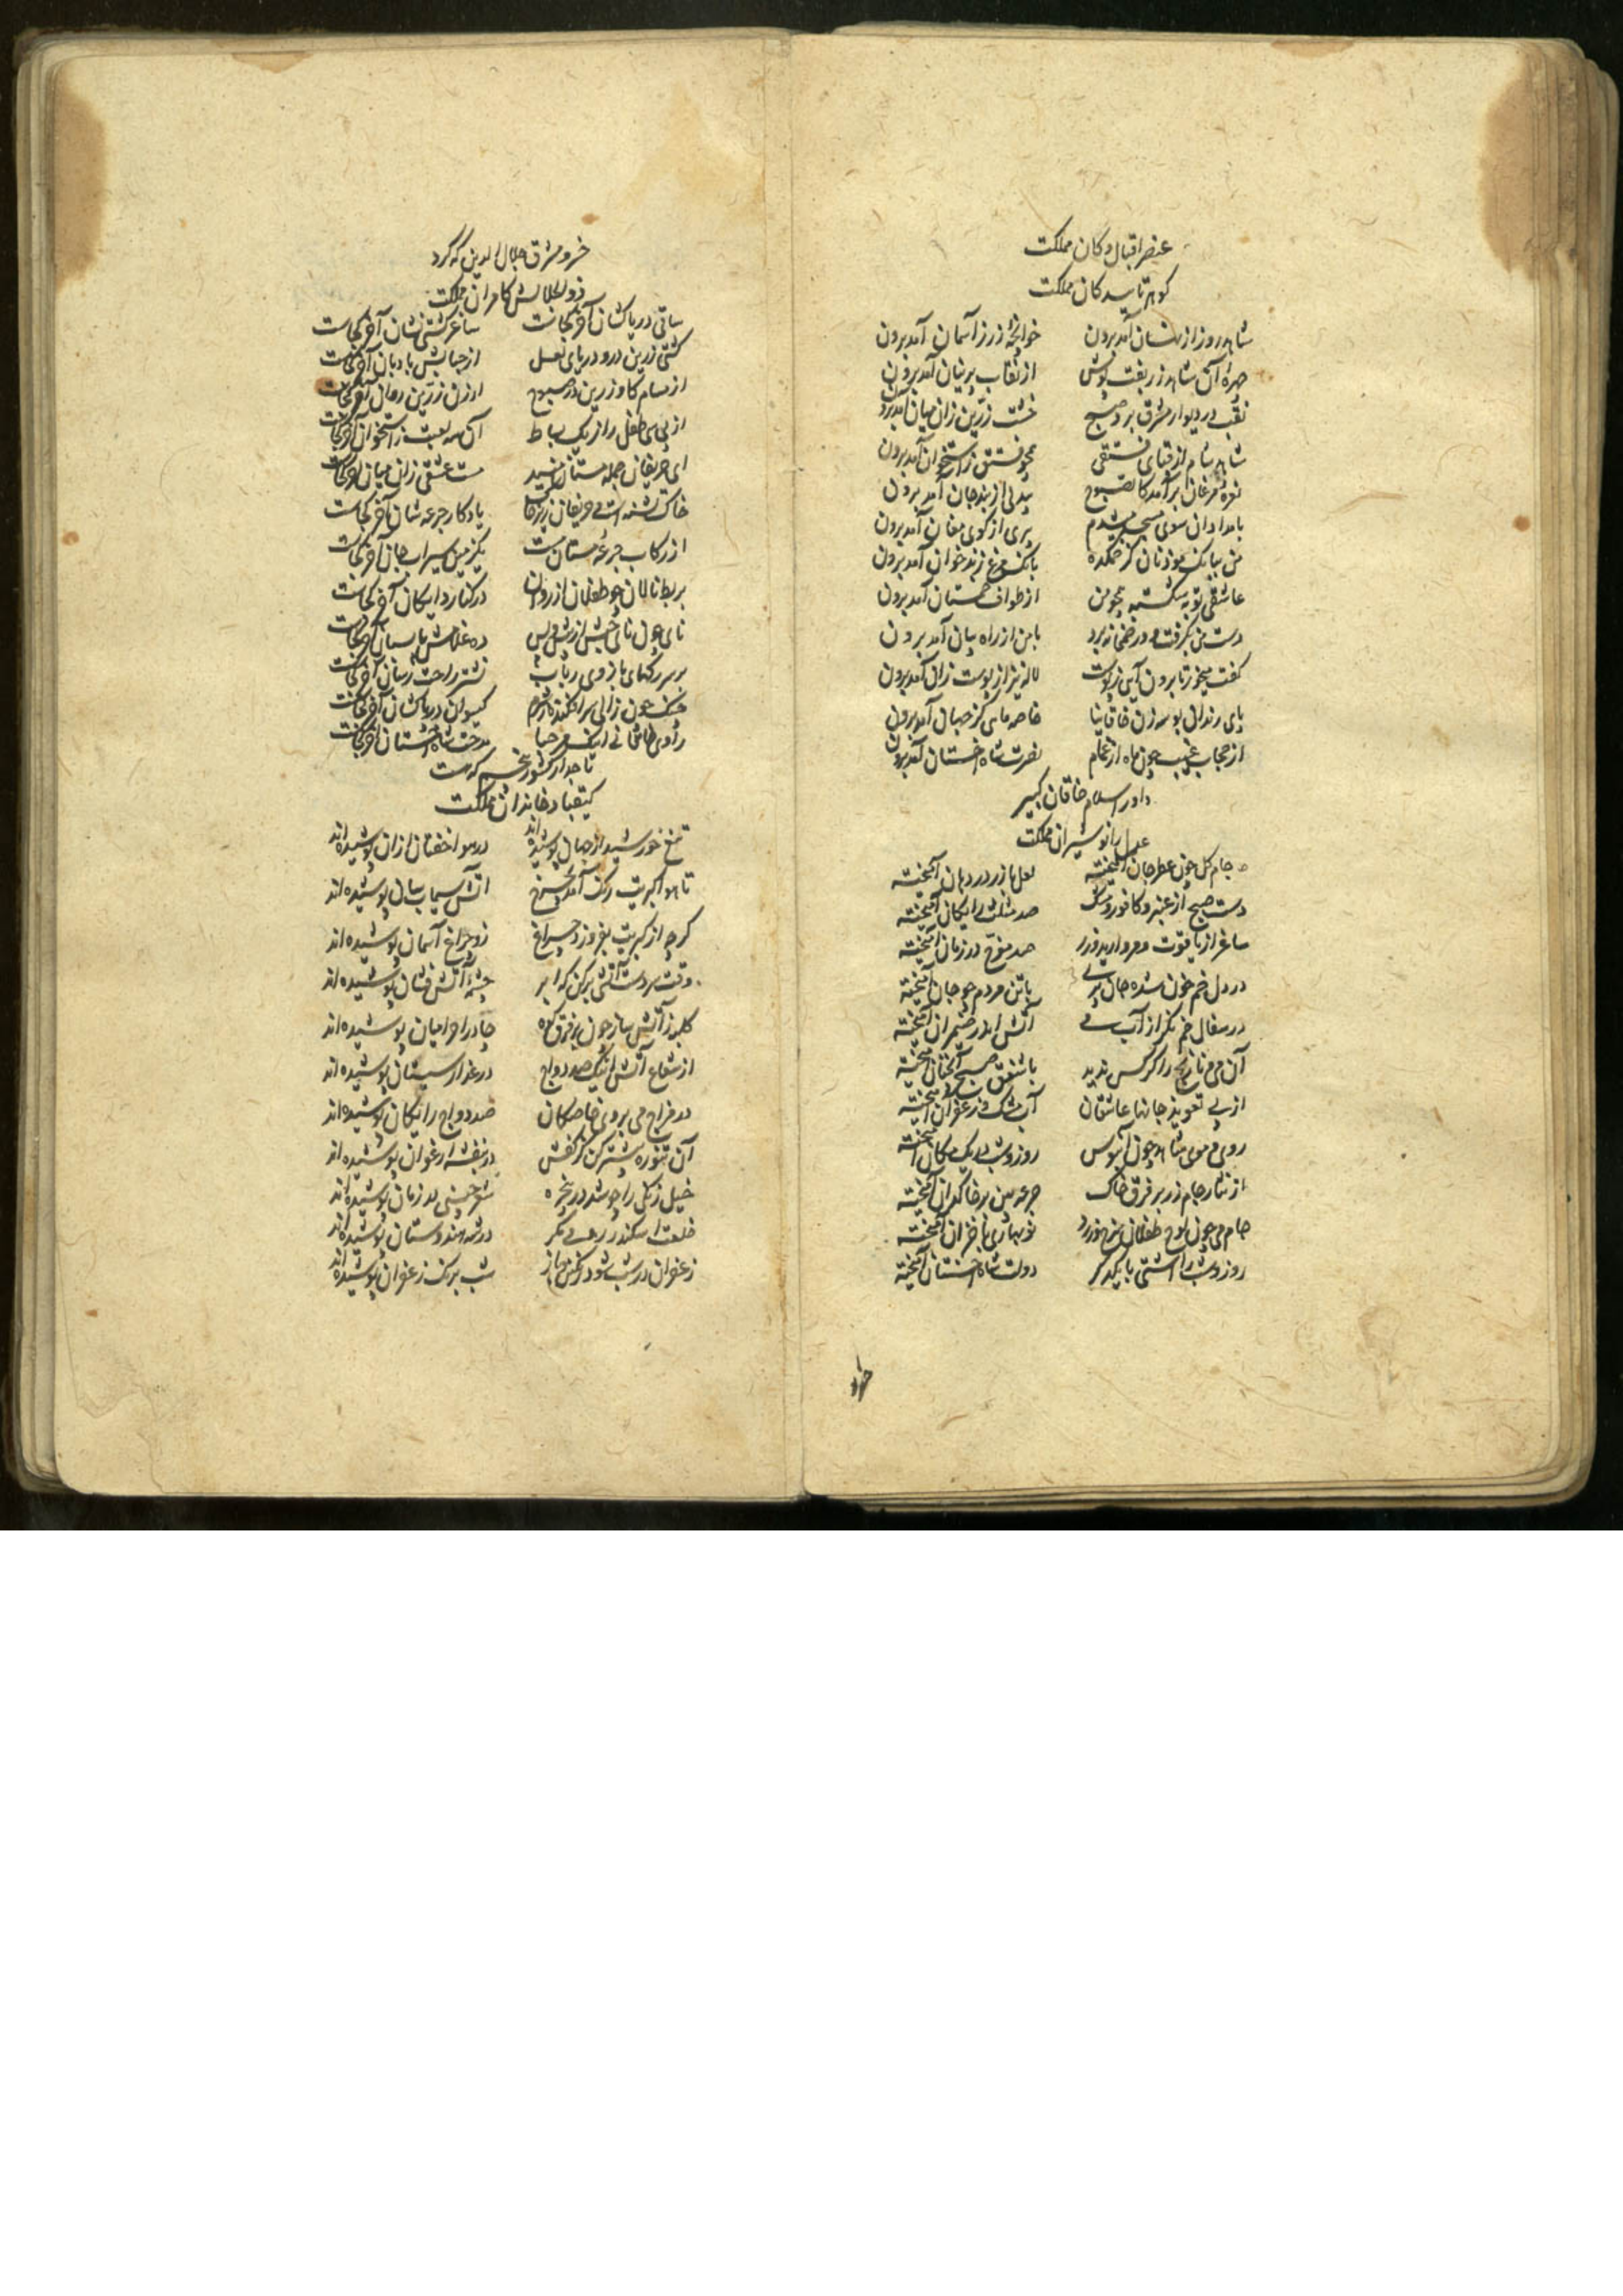 عنصر اقبال و کان مملکت
کوهر تایید کان مملکت
شاهد روز از نهان آمد برون خوانچهٔ زر ز آسمان آمد برون
چهرهٔ آن شاهد زربفت پوش از نقاب پرنیان آمد برون
نقب در دیوار مشرق برد صبح خشت زرین زان میان آمد برون
شاهد شام از قبای فستقی همچو فستق ز استخوان آمد برون
نعرهٔ مرغان برآمد کالصبوح بیدلی از بند جان آمد برون
بامدادان سوی مسجد میشدم پیری از کوی مغان آمد برون
من ببانک موذنان کز میکده بانک مرغ زندخوان آمد برون
عاشقی توبه شکسته همچو من از طواف آمد برون
دست من بکرفت و در میخانه برد با من از راه بیان آمد برون
کفت میخور تا برون آیی ز پوست لاله نیز از پوست زان آمد برون
پای رندان بوسه زن خاقانیا خاصه مای کز جهان آمد برون
از حجاب غیب چون ماه از غمام نصرت شاه اخستان آمد برون
داور اسلام خاقان کبیر
عدل را نوشیران مملکت
جام کل چون عطر جان آمیخته لعل با زر در دهان آمیخته
دست صبح از عنبر و کافور و مشک صد مثلث رایکان آمیخته
ساغر از یاقوت و مروارید و زر صد مفرح در زمان آمیخته
در دل خم خون شده جان پری با تن مردم چو جان آمیخته
در سفال خم نکر از آب می آتش اندر ضیمران آمیخته
آن می و نارنج را کر کس ندید با شفق صبح آنچنان آمیخته
از پی تعویذ جانها عاشقان آب مشک و زعفران آمیخته
روی و موی شاهد چون آبنوس روز و شب در یک مکان آمیخته
از نثار جام زر بر فرق خاک جرعه بین بر خاکدان آمیخته
جام می چون لوح طفلان سرخ و زرد نوبهاری با خزان آمیخته
روز و شب را آشتی با یکدکر دولت شاه اخستان آمیخته
خسرو
خسرو مشرق جلال الدین که کرد
ذوالجلالش کامران مملکت
ساقی دریاکشان آخر کجاست ساغر کشتی نشان آخر کجاست
کشتی زرین در و دریای لعل از حبابش بادبان آخر کجاست
از مسام کاو زرین در صبوح ارزن زرین روان آخر کجاست
از پی سی طفل را از یک بساط آن سه لعبت ز استخوان آخر کجاست
ای حریفان جمله مستان می‌اید مست عشقی زان میان آخر کجاست
خاک تشنه است و حریفان زیر خاک یادکار جرعه شان آخر کجاست
از رکاب جرعهٔ مستان مست یک زمین سیراب جان آخر کجاست
بربط نالان چو طفلان از زدن در کنار دایکان آخر کجاست
نای چون نای حبش از پیش و پس ده غلامش پاسبان آخر کجاست
بر سر رکهای بازوی رباب نشتر راحت رسان آخر کجاست
چنک چون زالی سرافکنده ز شرم کیسوان در پاکشان آخر کجاست
راوی خاقانی اینک مرحبا مدحت شاه اخستان آخر کجاست
تاجدار کشور پنجم که هست
کیقباد خاندان مملکت
تیغ خورشید از جهان پوشیده‌اند در هوا خفتان ازان پوشیده‌اند
تا هوا کبریت رنک آمد ز میغ آتش سیماب سان پوشیده‌اند
کرچه از کبریت بفروزد چراغ زو چراغ آسمان پوشیده‌اند
وقت سردست آتشی برکن که ابر چشمهٔ آتش فشان پوشیده‌اند
کلبه ز آتش ساز چون بر فرق کوه چادر احرامیان پوشیده‌اند
از شعاع آتش اینک صد دواج در عذار سیستان پوشیده‌اند
در فراج می بروی خاصکان صد دواج رایکان پوشیده‌اند
آن تنوره پشترکن کز کفش در بنفشه ارغوان پوشیده‌اند
خیل زنکی را چو شد در پنجره شعر چینی در زمان پوشیده‌اند
خلعت اسکندر رومی نکر در شه هندوستان پوشیده‌اند
زعفران در شب شود رنکش ز باز شب برنک زعفران پوشیده‌اند